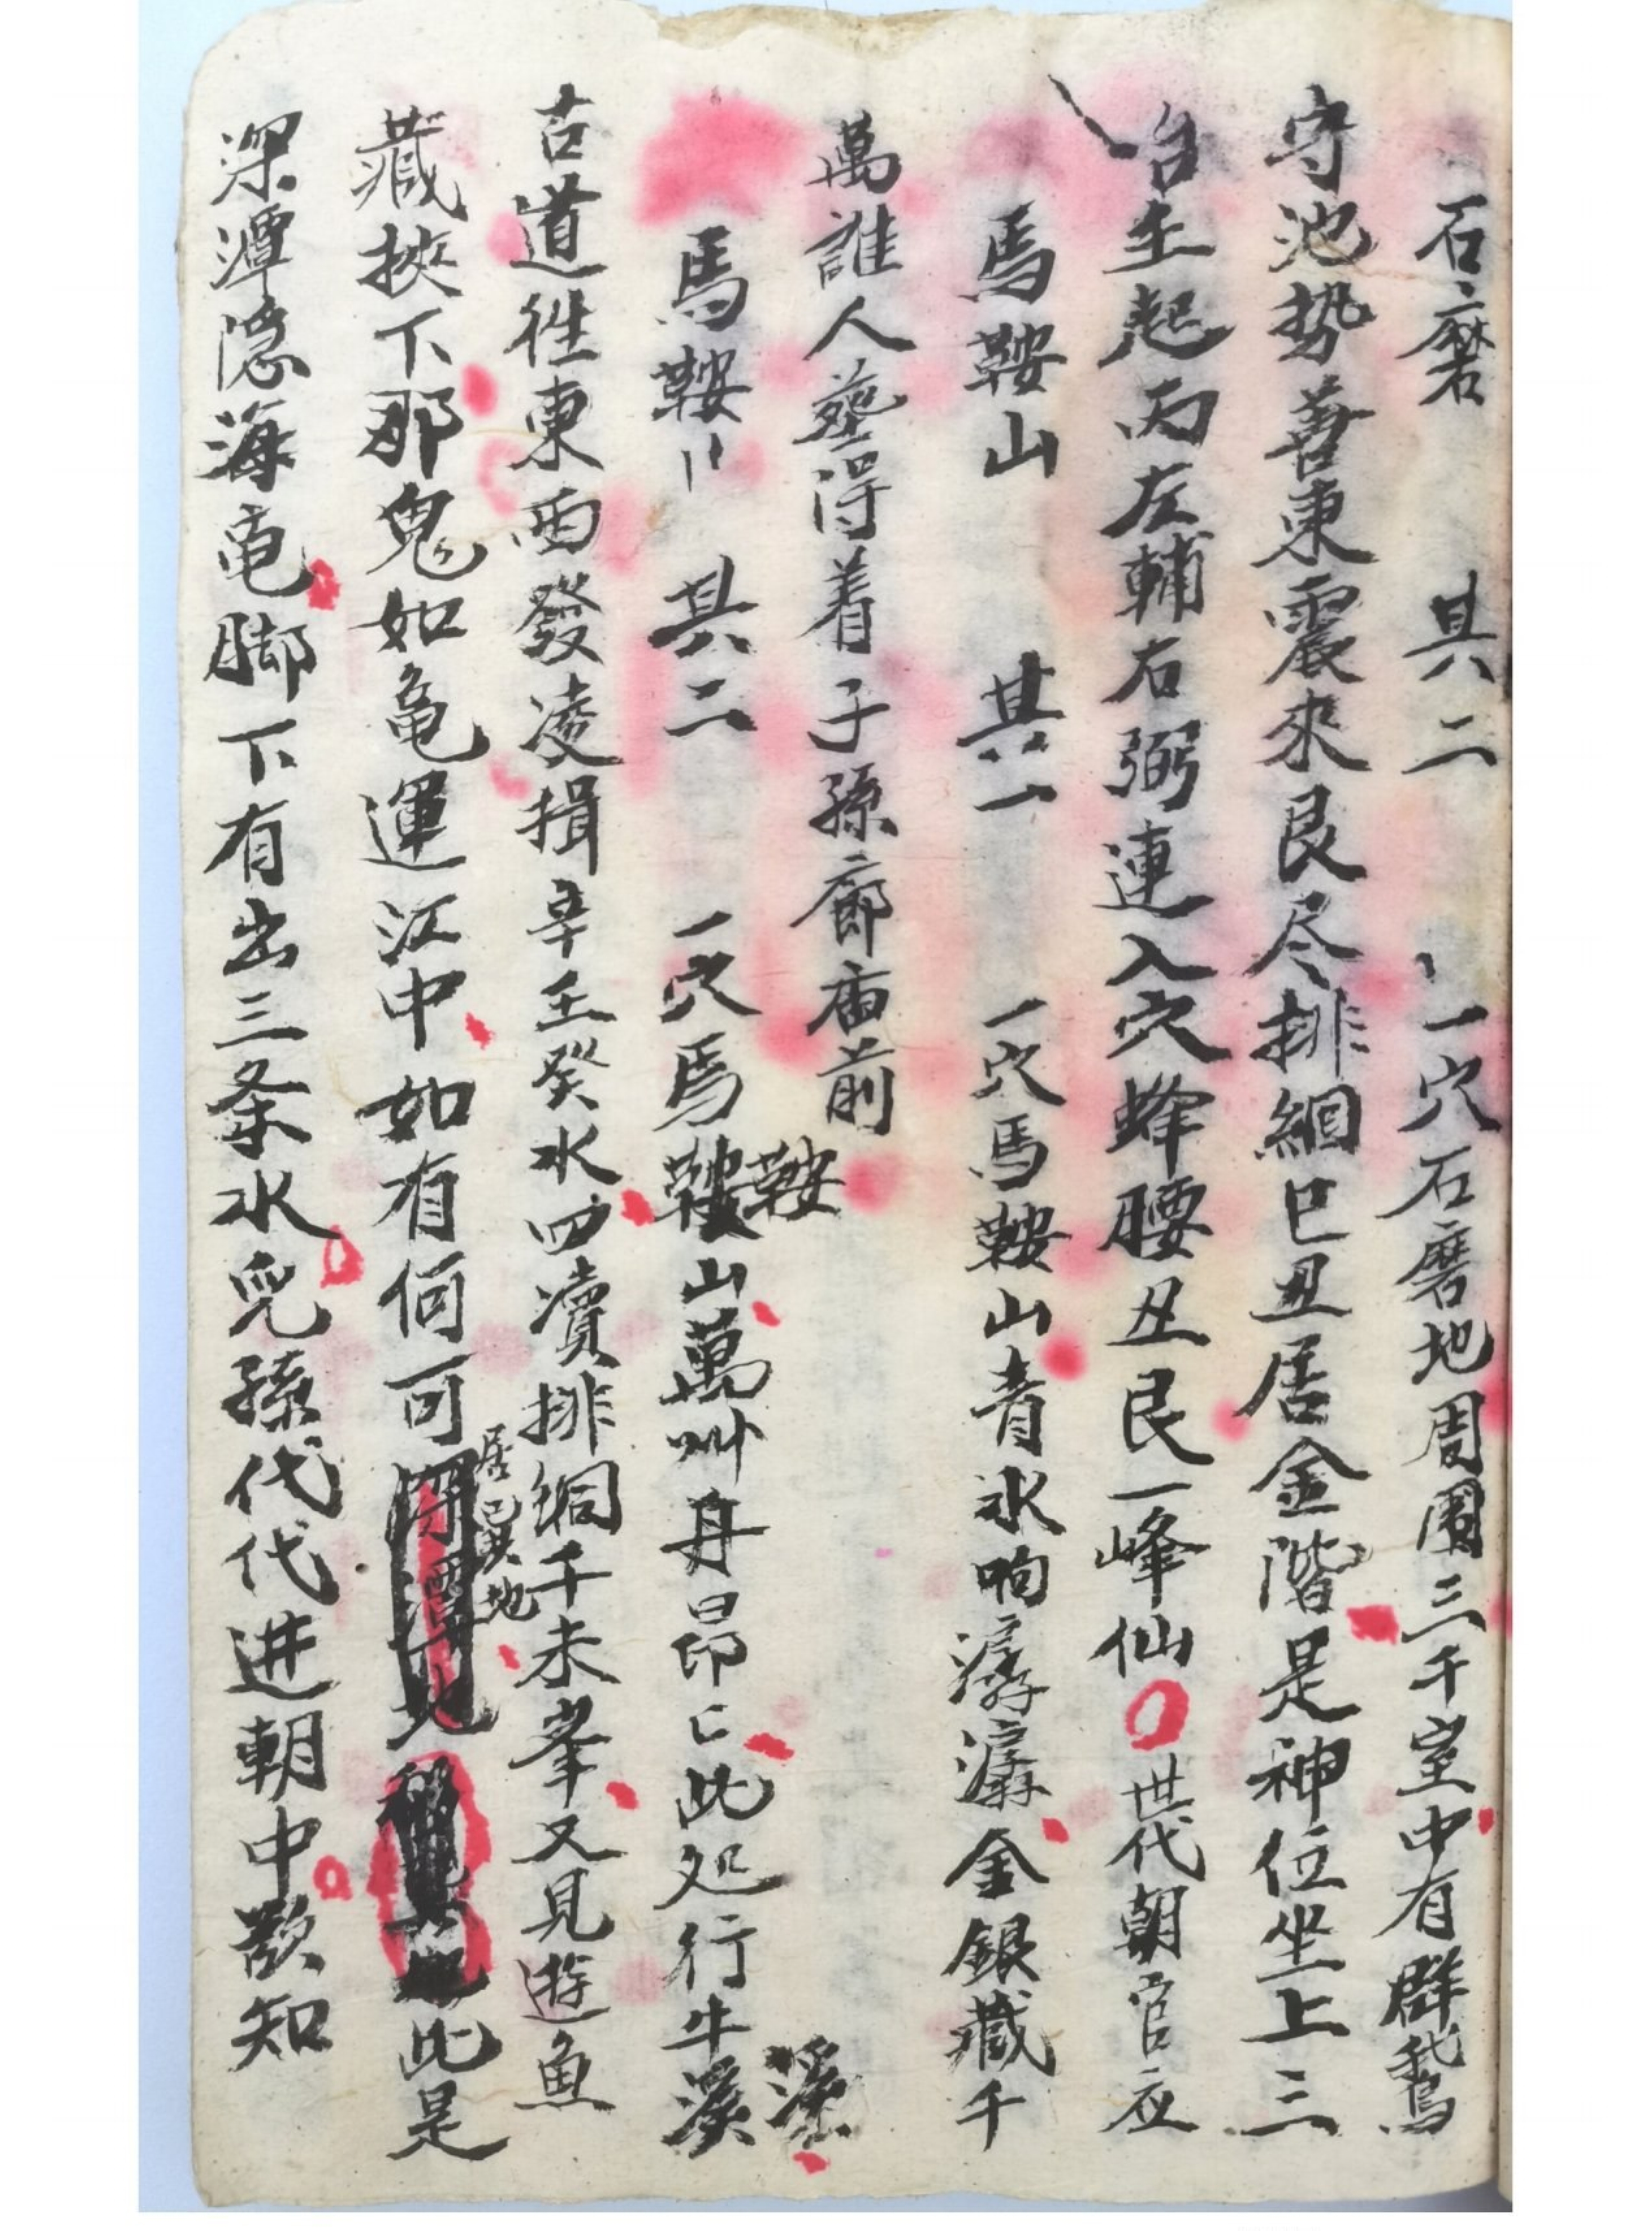 石磨　其二　一穴石磨地周圍三千室中有群鵝
守池勢善東震來艮尽排細巳丑居金階是神位坐上三
台生起丙左輔右弼連入穴蜂腰丑艮一峰仙世代朝官应
馬鞍山　其一　一穴馬鞍山青水响潺潺金銀藏千
萬誰人塟得着子孫廊庙前
馬鞍〃　其二　一穴馬鞍山萬卅丹昂〻此处行牛溪
鞍
溪
古道徃東西發凌揖辛壬癸水四瀆排絅千未峯又見遊魚
居已其地
藏挾下那鬼如亀運江中如有何可此是
深潭隐海亀脚下有出三条水兒孫代代进朝中欲知